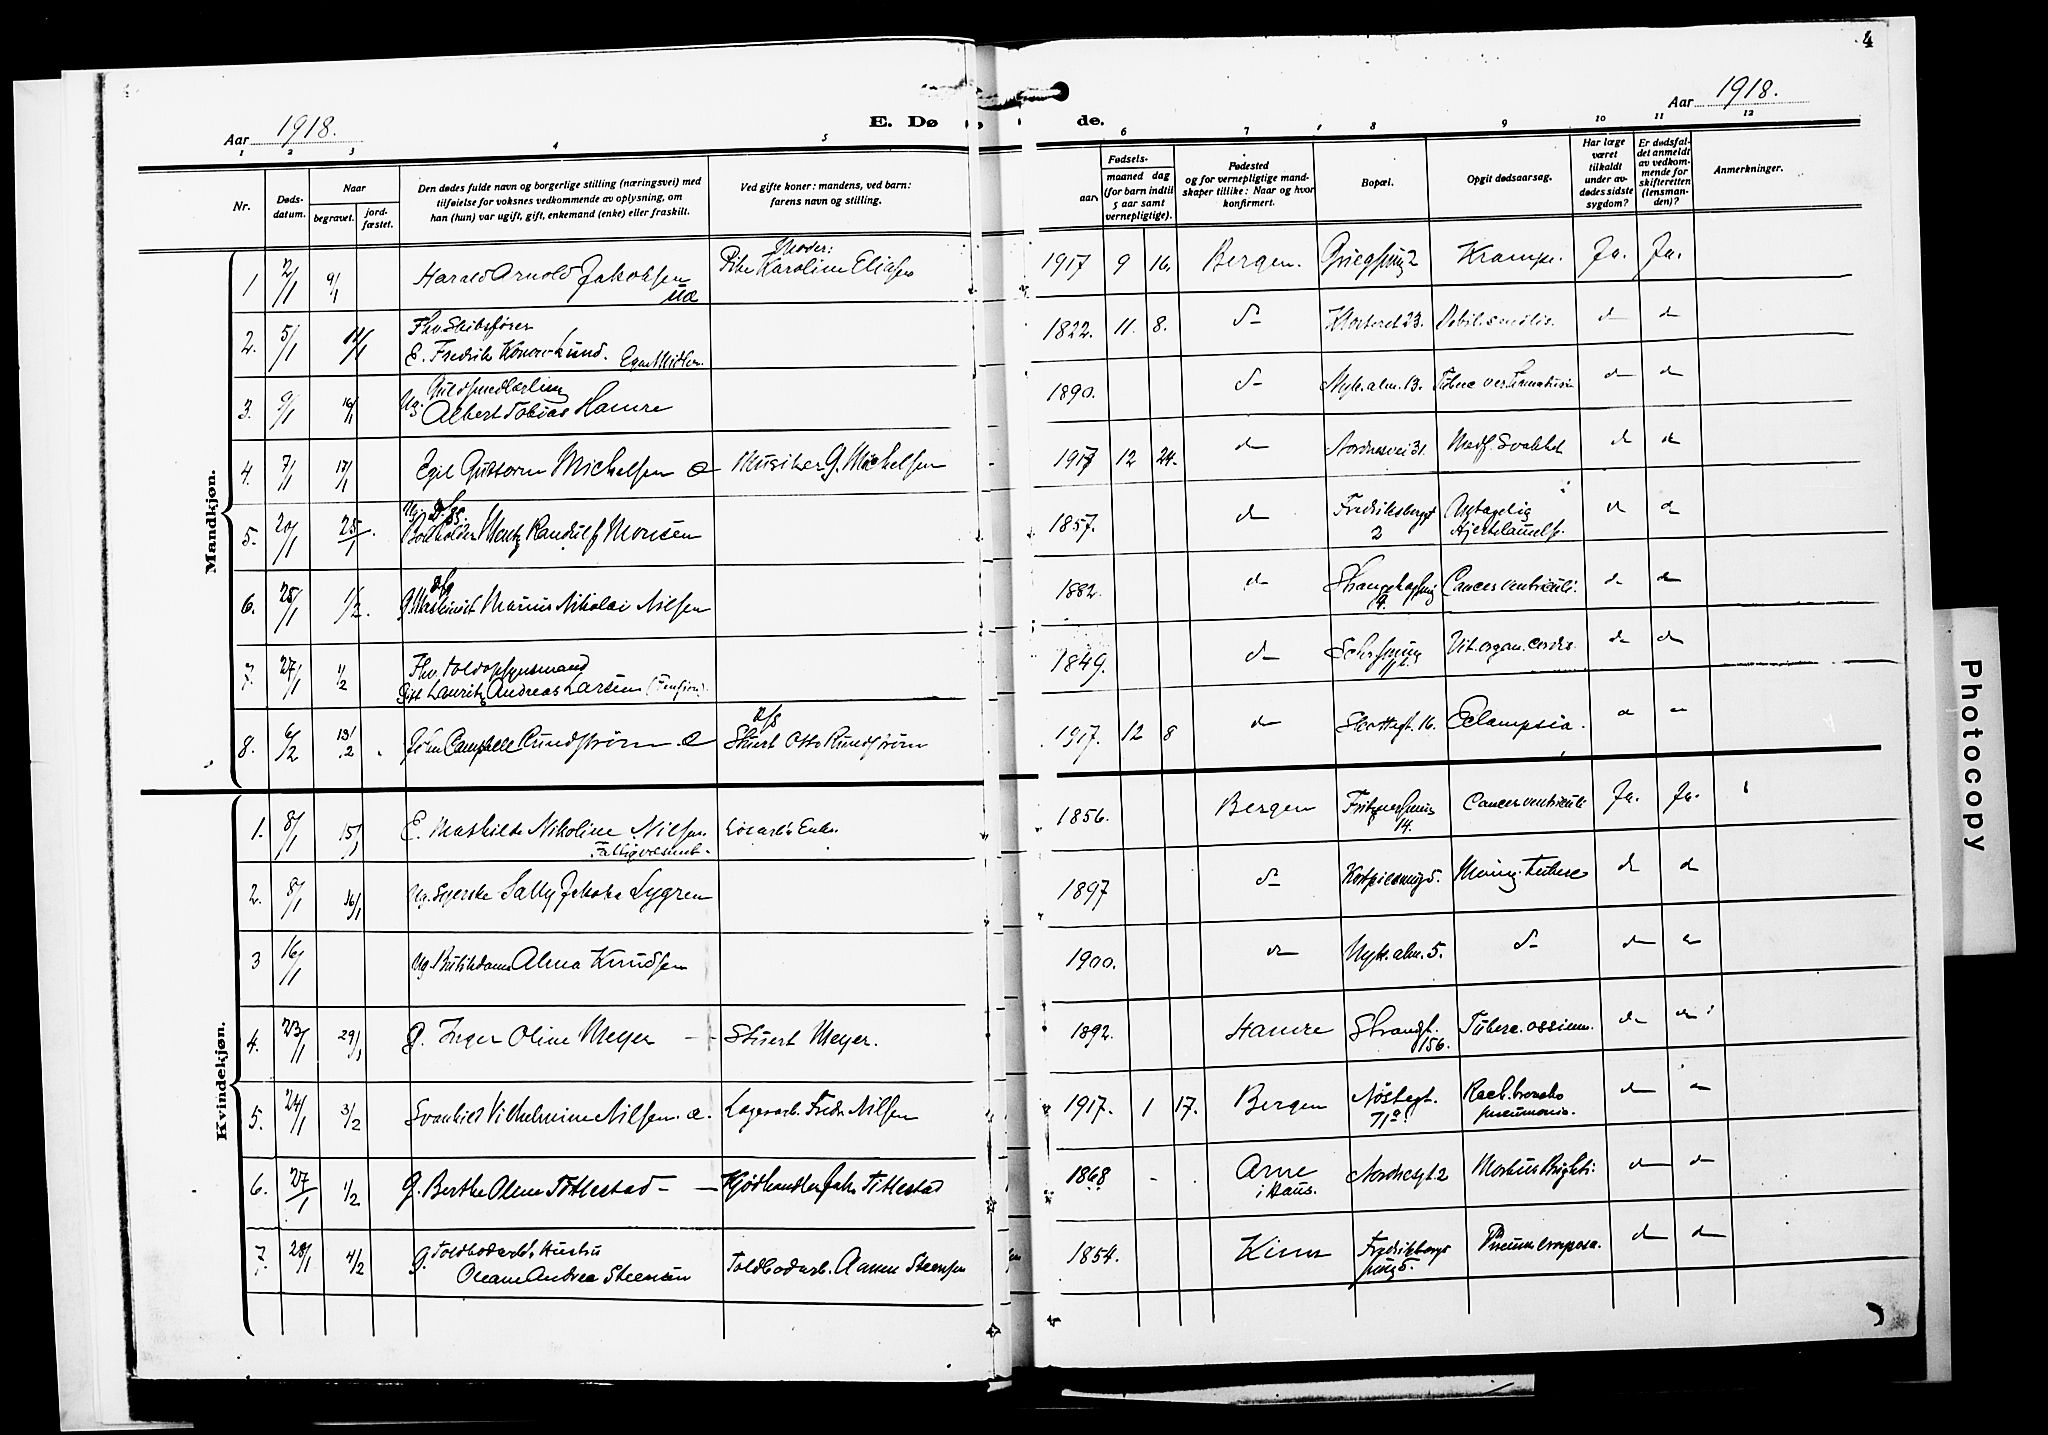 4
Aar 1918.
E. Dø de.
Aar 1918.
1 2 3 4 5 6 7 8 9 10 11 12
Nr.
Døds-
datum.
Naar
begravet.
jord-
fæstet.
Den dødes fulde navn og borgerlige stilling (næringsvei) med
tilføielse for voksnes vedkommende av oplysning, om
han (hun) var ugift, gift, enkemand (enke) eller fraskilt.
Ved gifte koner: mandens, ved barn:
farens navn og stilling.
Fødsels-
aar.
maaned dag
(for barn indtil
5 aar samt
vernepligtige).
Fødested
og for vernepligtige mand-
skaper tillike: Naar og hvor
konfirmert.
Bopæl.
Opgit dødsaarsag.
Har læge
været
tilkaldt
under av-
dødes sidste
sygdom?
Er dødsfal-
det anmeldt
av vedkom-
mende for
skifteretten
(lensman-
den)?
Anmerkninger.
Mandkjøn.
1 2/1 9/1 Harald Arnold Jakobsen Moder: Pike Karoline Eliasen 1917 9 16. Bergen. 2 Krampe. Ja. Ja.
2. 5/1 11/1 Fhv. Skibsfører
E. Fredrik Konow Lund. Egne Midler. 1822. 11. 8. d- Klosteret 23. Debil. senilis. d d
3. 9/1 16/1 Guldsmedlærling
Ug. Albert Tobias Hamre 1890. d- Nyk. alm. 13. d d
4. 7/1 17/1 Egil Guttorm Michelsen Musiker G. Michelsen 1917 12 24. d Nordnesvei 31 Medf. Svakhet d d
5. 20/1 25/1. Ug. D/S.
Bokholder Mentz Randulf Monsen 1857. d Fredriksbergsgt
2 Hjertelammelse. d d
6. 25/1 1/2. G. Maskinist Marius Nikolai Nilsen 1882. d 4. Cancer ventriculi. d d
7. 27/1 1/2 Fhv. Toldopsynsmand
Gift Lauritz Andreas Larsen (Pension). 1849. d Vit. organ. cordis. d d
8. 6/2 13/2 John Campbell Rundstrøm D/S Stuert Otto Rundstrøm 1917. 12 8 d Skottegt. 16. Eclampsia. d d
Kvindekjøn.
1. 8/1 15/1 E. Mathilde Nikoline Nilsen.
Fattigvæsenet. Enke. 1856. Bergen 14. Cancer ventriculi Ja. Ja.
2. 8/1 16/1 Ug. Syerske Sally Jakoba Lygren 1897 d- Mening. Tuberc d d
3 16/1 Ug. Butikdame Alma Knudsen 1900. d Nyk. alm. 5. d- d d
4. 23/1 29/1 G. Inger Oline Meyer - - Stuert Meyer. 1892. Hamre Strandgt.
156. Tuberc. ossium. d d
5. 24/1 3/2 Svanhild Vilhelmine Nilsen. Lagerarb. Fredr. Nilsen 1917. 1 17. Bergen Nøstegt.
71a. broncho
pneumonia. d d
6. 27/1 1/2 G. Berthe Oline Tittlestad - - Kjødhandler Jak. Tittlestad 1868 Arne
i Haus. Nordnesgt. 2 Morbus Brightii d d
7. 28/1 4/2 G. Toldbodarb. Hustru
Oleane Andrea Steensen Toldbodarb. Steensen 1854. Kinn Fredriksbergs
smug 5. Pneum. crouposa. d d
Photocopy